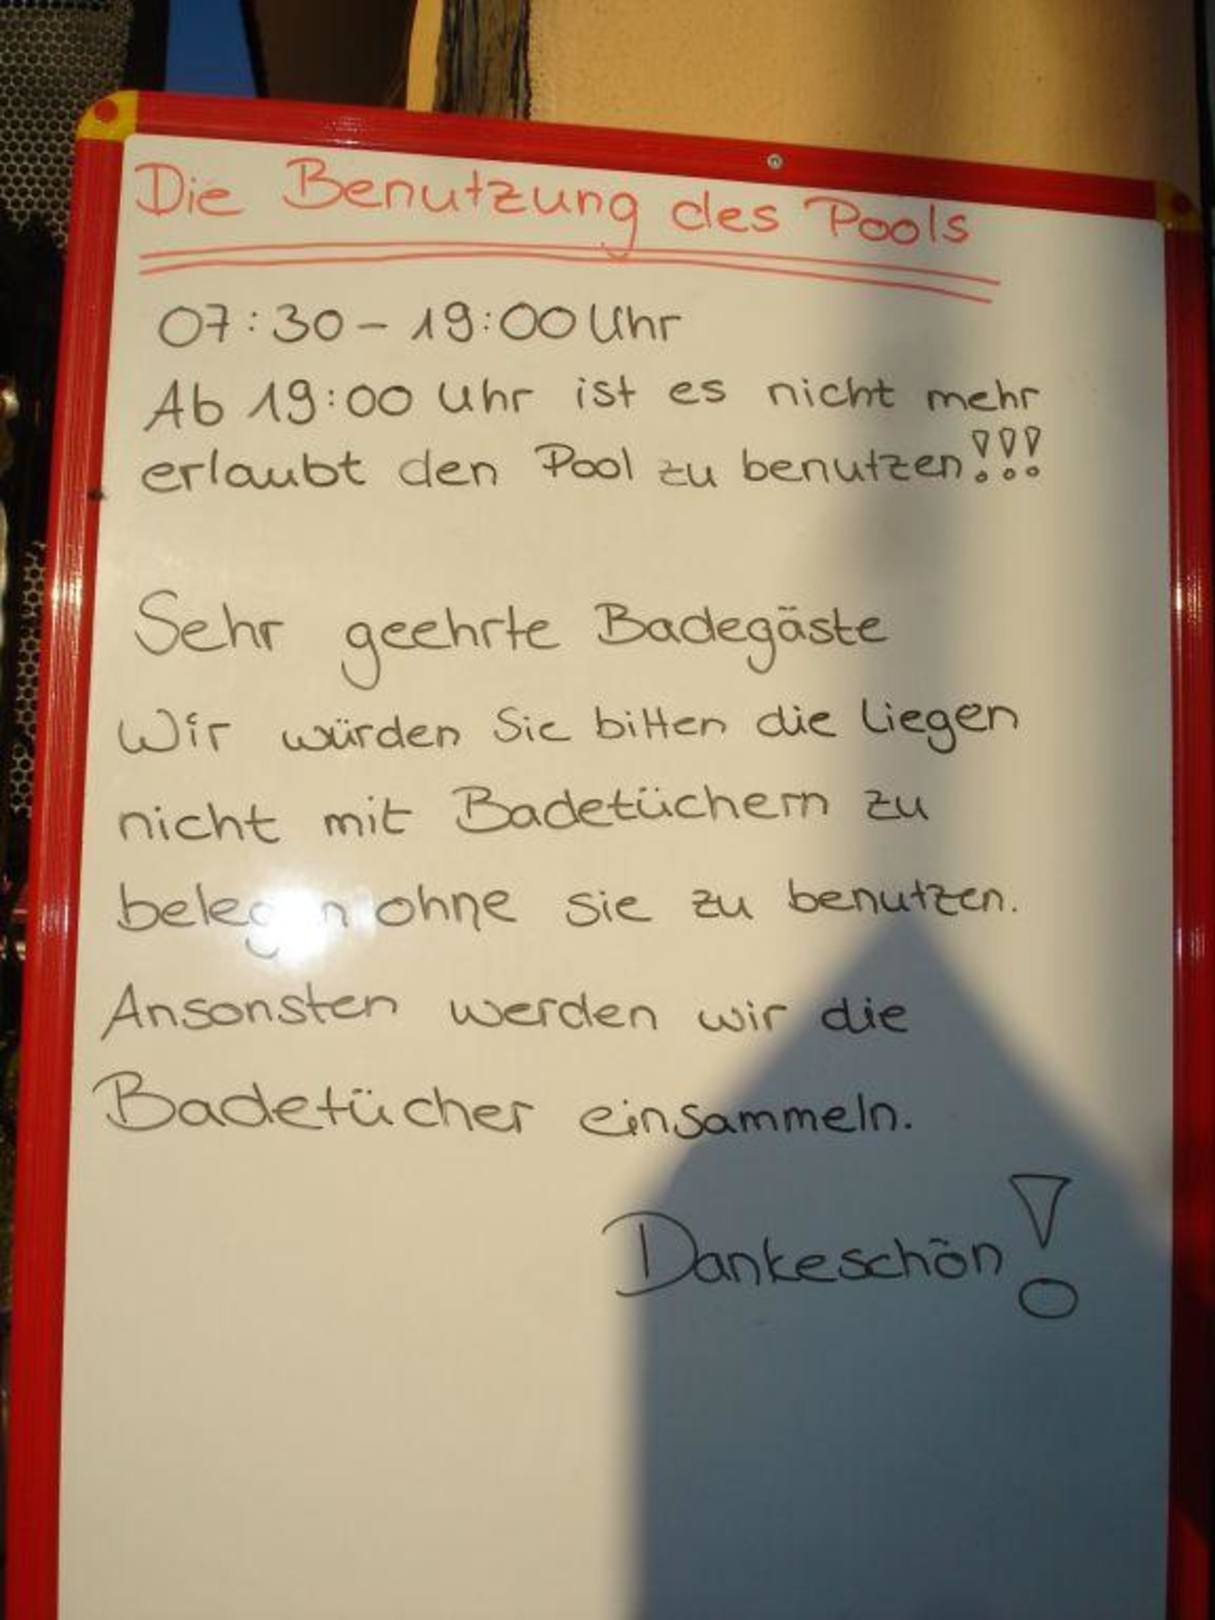 Die Benutzung des Pools
07:30 - 19:00 Uhr
Ab 19:00 Uhr ist es nicht mehr
erlaubt den Pool zu benutzen!!!
Sehr geehrte Badegäste
Wir würden Sie bitten die Liegen
nicht mit Badetüchern zu
belegen ohne sie zu benutzen.
Ansonsten werden wir die
Badetücher einsammeln.
Dankeschön!